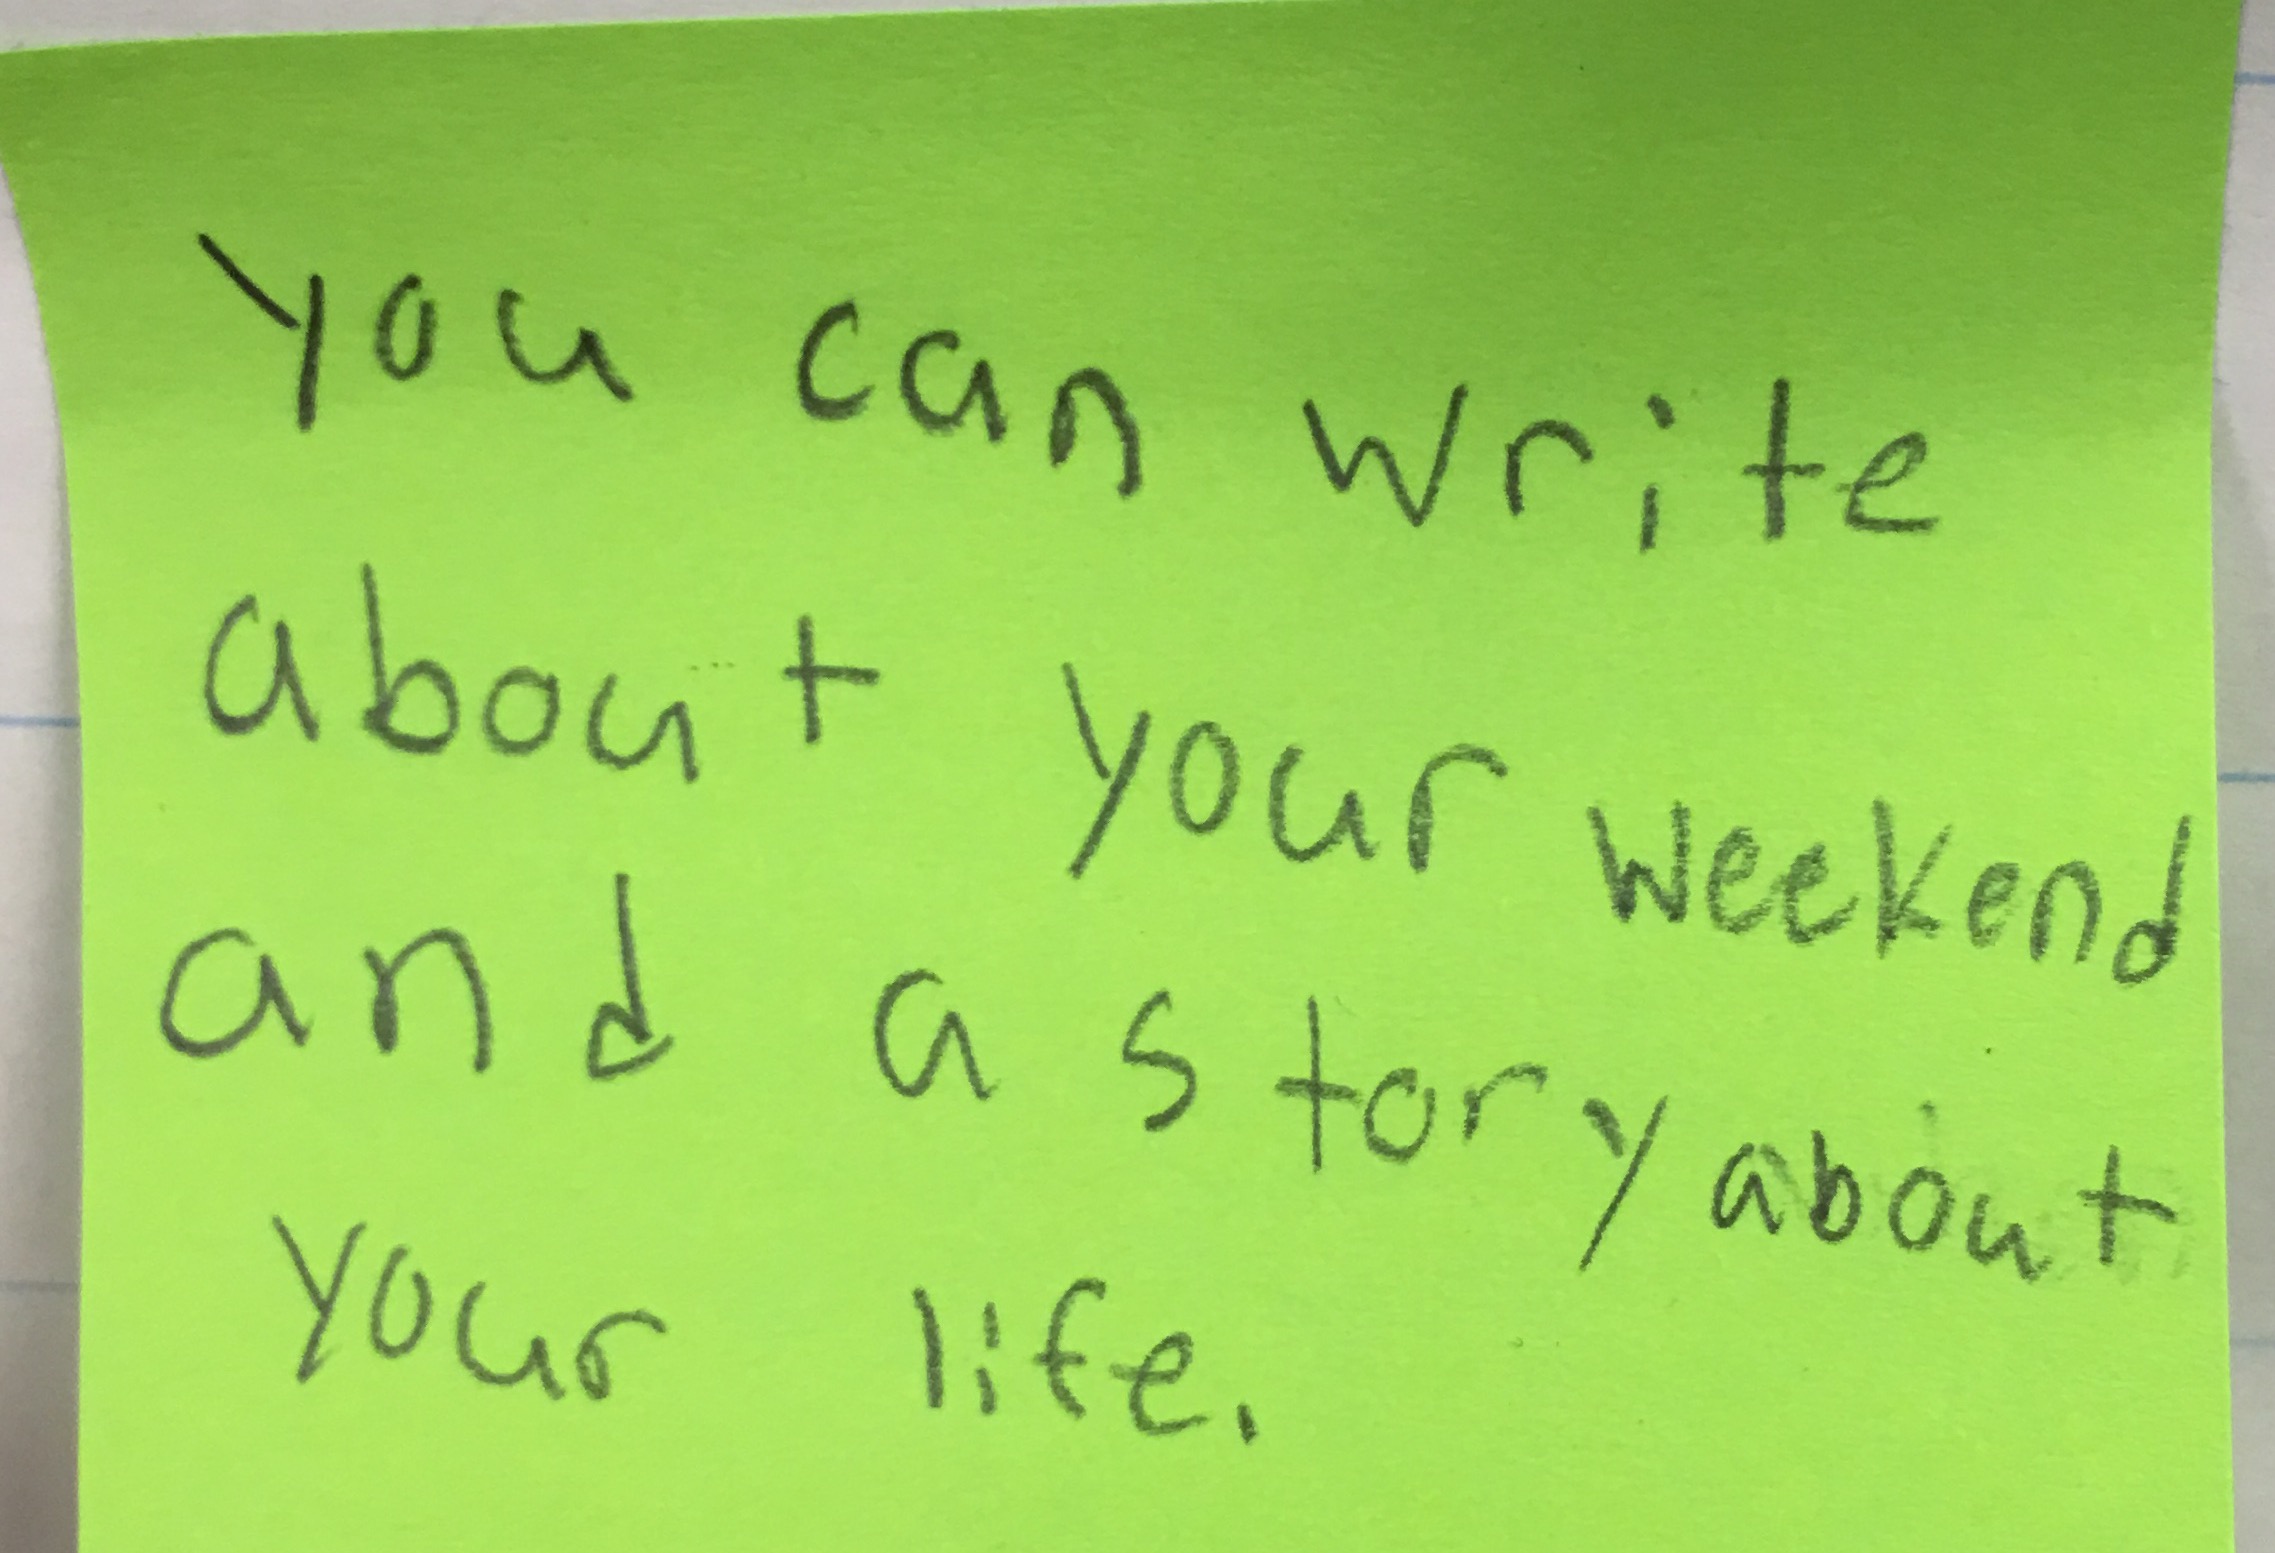 you can write
about your weekend
and a story about
your life.